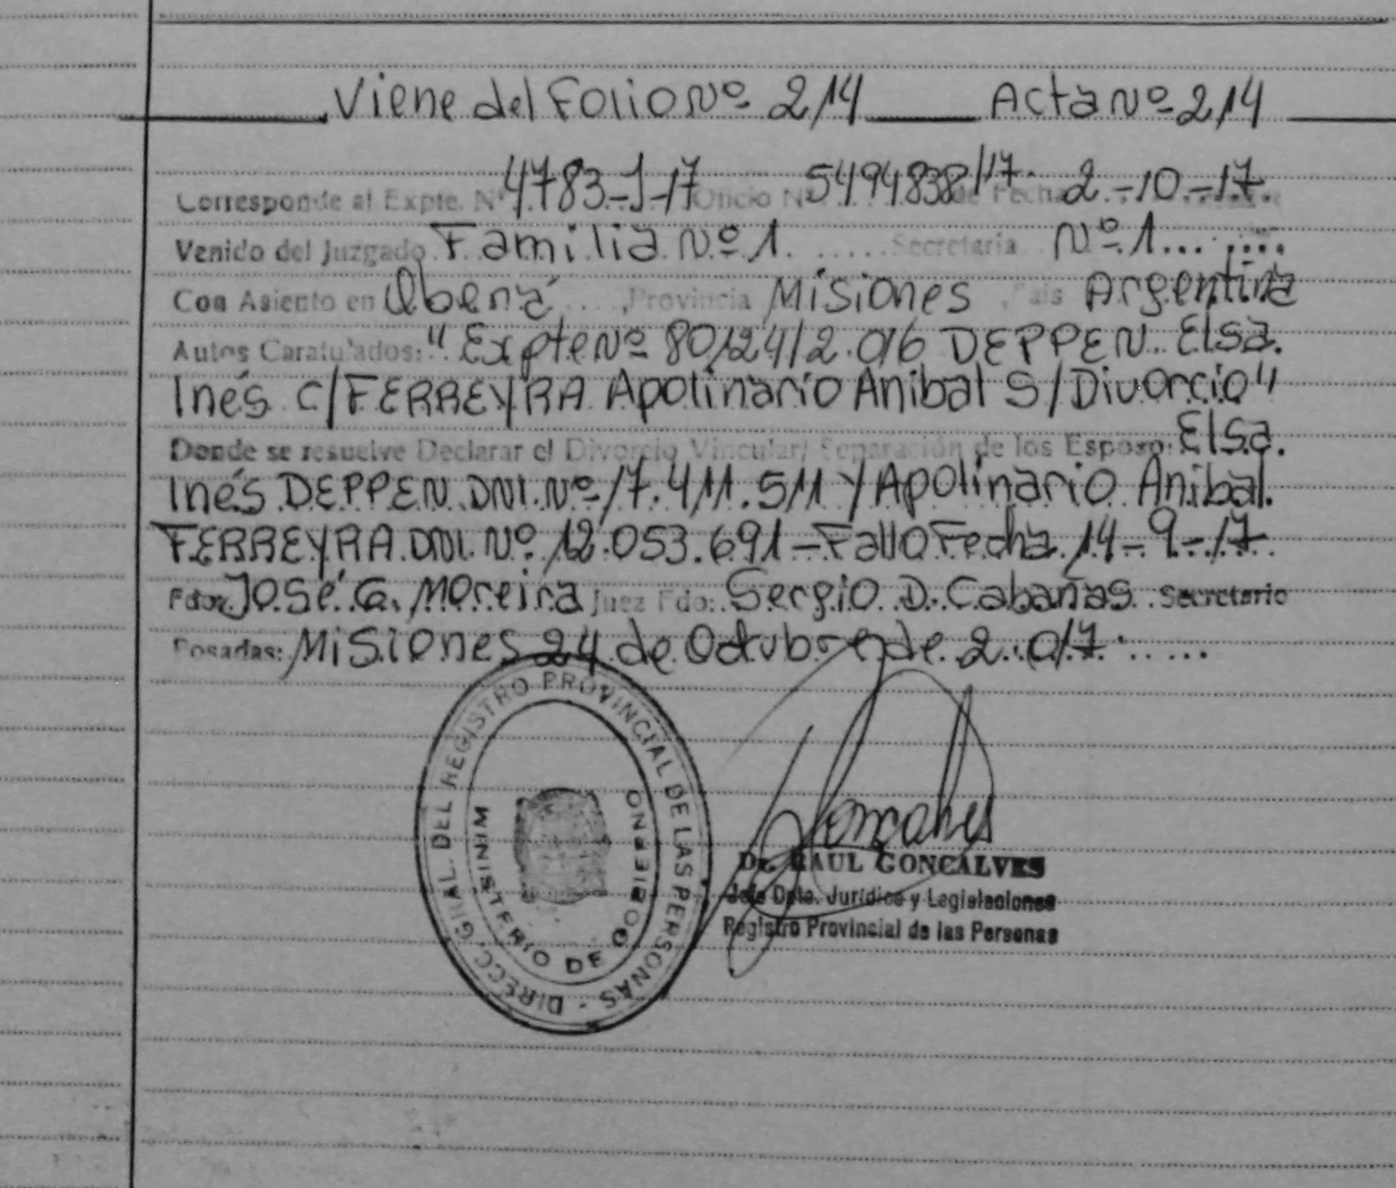 Viene del Folio Nº 214 Acta Nº 214
Corresponde al Expte. Nº 4783-J-17 Oficio Nº 5494838/17. de Fecha 2-10-17.
Venido del Juzgado Familia Nº 1. Secretaria Nº 1
Con Asiento en Oberá, Provincia Misiones, Pais Argentina
Autos Caratulados: "Expte Nº 80124/2.016 DEPPEN Elsa
Inés C/FERREYRA Apolinario Anibal S/Divorcio"
Donde se resuelve Declarar el Divorcio Vincular/ Separación de los Esposo: Elsa
Inés DEPPEN DNI. Nº 17.411.511 y Apolinario Anibal
FERREYRA DNI. Nº 12.053.691 - Fallo Fecha 14-9-17.
Fdo: José G. Moreira Juez Fdo: Sergio D. Cabañas Secretario
Posadas: Misiones 24 de Octubre de 2.017.
DIRECC. GRAL. DEL REGISTRO PROVINCIAL DE LAS PERSONAS -
MINISTERIO DE GOBIERNO
Goncalves
Dr. RAUL GONCALVES
Jefe Dpto. Jurídico y Legislaciones
Registro Provincial de las Personas